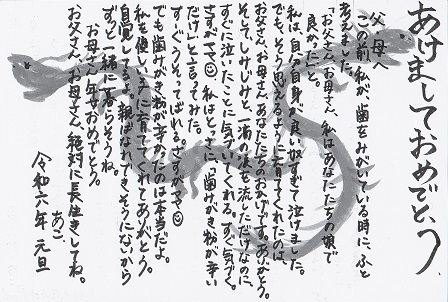 あけましておめでとう
父、母へ
この前、私が歯をみがいている時に、ふと
考えました。
「お父さん、お母さん、私はあなたたちの娘で
良かった」と。
私は、自分自身が良い奴すぎて泣けました。
でも、そう思えるように育ててくれたのは
お父さん、お母さん、あなたたちのおかげです。ありがとう。
そして、しみじみと一滴の涙を流しただけなのに、
すぐに泣いたことに気づいてくれる。すぐ気づく。
さすがママ☺私はとっさに、「歯みがき粉が辛い
だけ」と言ってみた。
すぐうそってばれる。さすがママ☺
でも歯みがき粉が辛かったのは本当だよ。
私を優しい子に育ててくれてありがとう。
自覚してるよ。親ばなれできそうにないから
ずっと一緒に暮らそうね。
お母さん年女おめでとう。
お父さん、お母さん絶対に長生きしてね。
あこ
令和六年 元旦